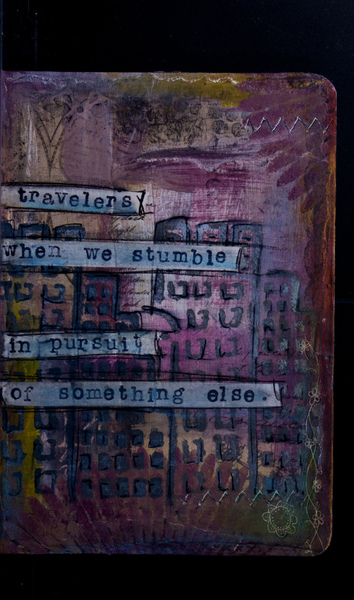 travelers
when we stumble
in pursuit
of something else.